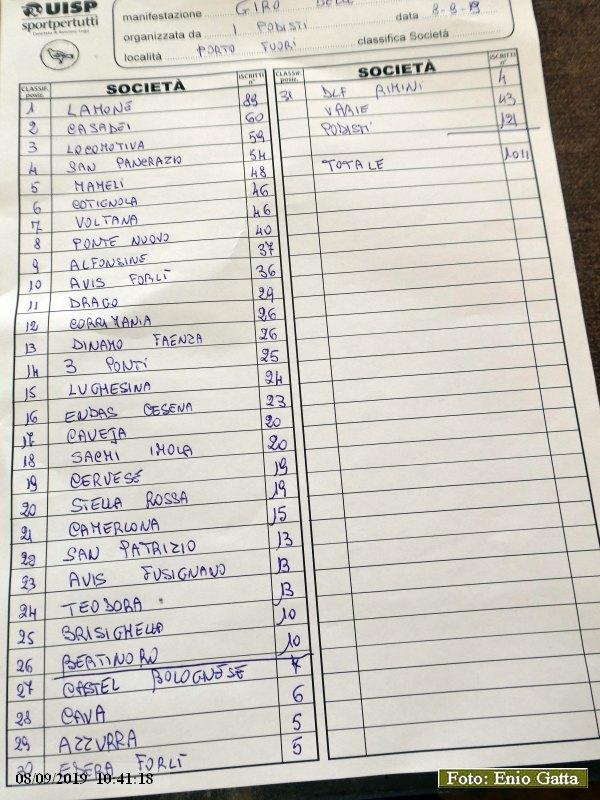 UISP
sportpertutti
manifestazione GIRO DELLE
organizzata da I PODISTI data 8-9-19
località PORTO FUORI classifica Società
CLASSIF. posiz. SOCIETÀ ISCRITTI n°
1 LAMONE 89
2 CASADEI 60
3 LOCOMOTIVA 59
4 SAN PANCRAZIO 54
5 MAMELI 48
6 COTIGNOLA 46
7 VOLTANA 46
8 PONTE NUOVO 40
9 ALFONSINE 37
10 AVIS FORLÌ 36
11 DRAGO 29
12 CORRIMANIA 26
13 DINAMO FAENZA 26
14 3 PONTI 25
15 LUGHESINA 24
16 ENDAS CESENA 23
17 CAVEJA 20
18 SACMI IMOLA 20
19 CERVESE 19
20 STELLA ROSSA 19
21 CAMERLONA 15
22 SAN PATRIZIO 13
23 AVIS FUSIGNANO 13
24 TEODORA 13
25 BRISIGHELLA 10
26 BERTINORO 10
27 CASTEL BOLOGNESE 7
28 CAVA 6
29 AZZURRA 5
30 EDERA FORLÌ 5
CLASSIF. posiz. SOCIETÀ ISCRITTI n°
31 DLF RIMINI 4
VARIE 43
PODISTI 121
TOTALE 1011
08/09/2019 10:41:18
Foto: Enio Gatta